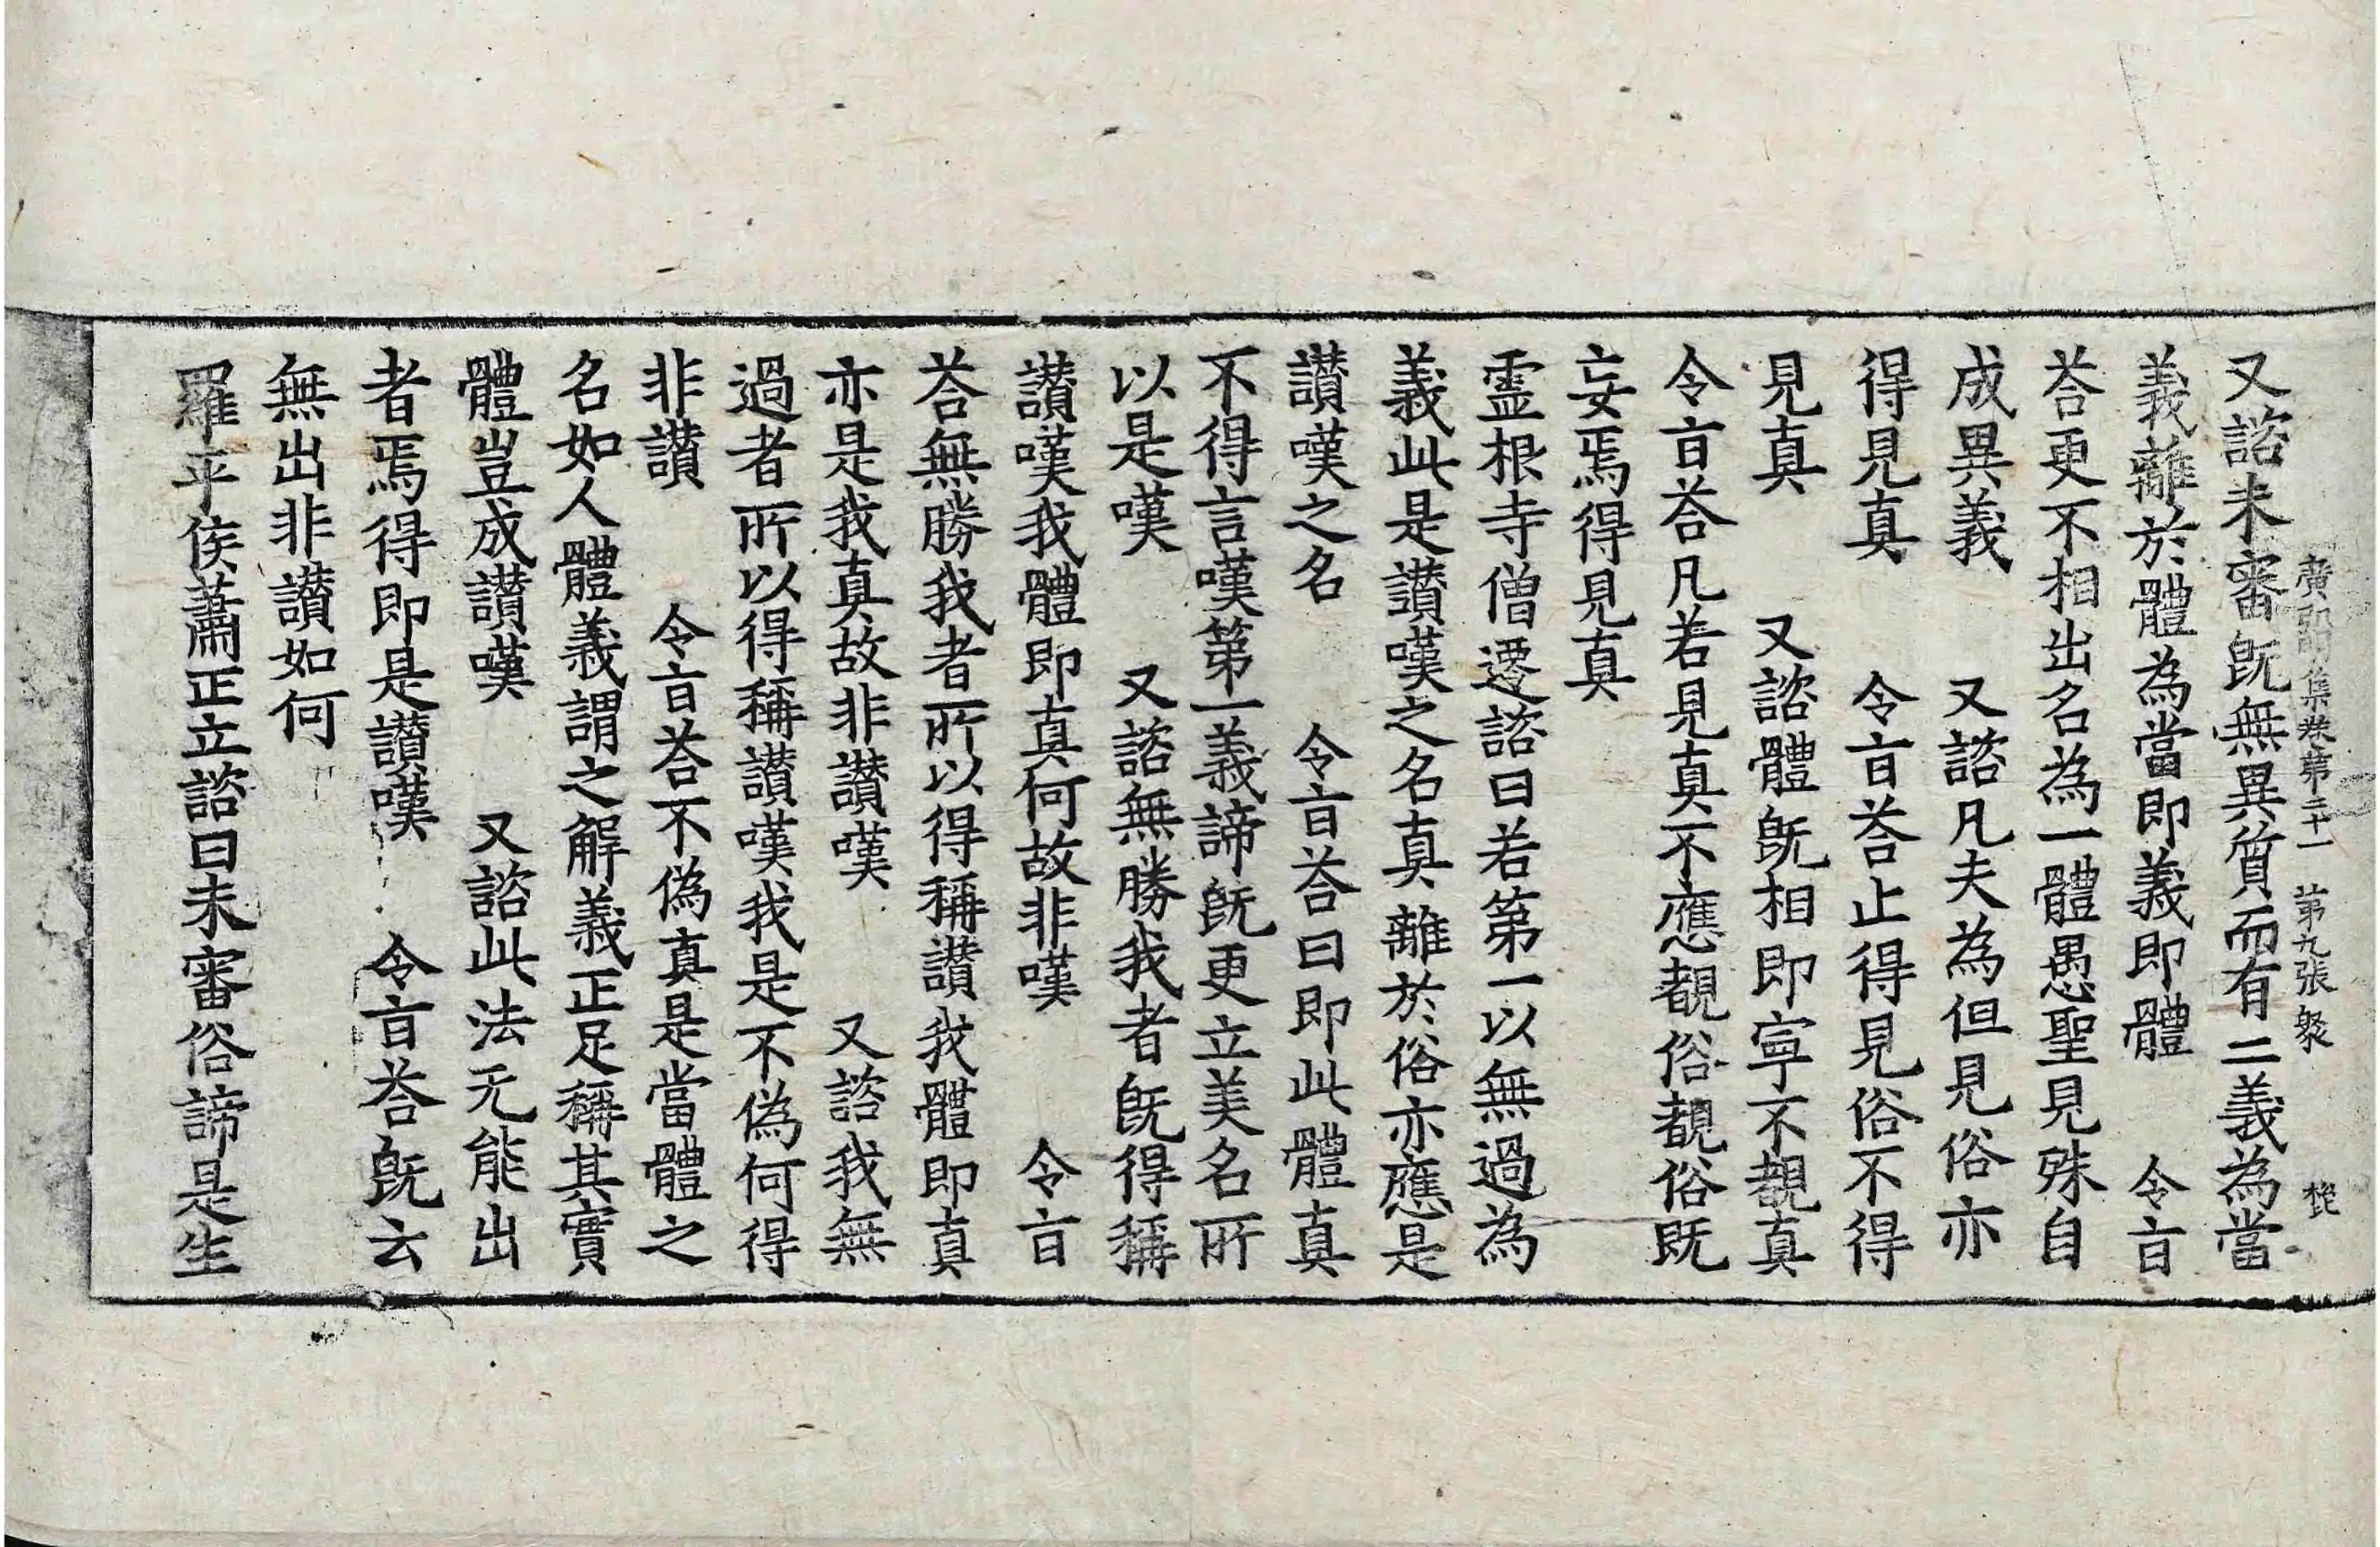 廣弘明集卷第二十一 第九張 聚
又諮未審旣無異質而有二義為當
義離於體為當即義即體 令旨
荅更不相出名為一體愚聖見殊自
成異義 又諮凡夫為但見俗亦
得見真 令旨荅止得見俗不得
見真 又諮體旣相即寧不覩真
令旨荅凡若見真不應覩俗覩俗旣
妄焉得見真
靈根寺僧遷諮曰若第一以無過為
義此是讃嘆之名真離於俗亦應是
讃嘆之名 令旨荅曰即此體真
不得言嘆第一義諦旣更立美名所
以是嘆 又諮無勝我者旣得稱
讃嘆我體即真何故非嘆 令旨
荅無勝我者所以得稱讃我體即真
亦是我真故非讃嘆 又諮我無
過者所以得稱讃嘆我是不偽何得
非讃 令旨荅不偽真是當體之
名如人體義謂之解義正足稱其實
體豈成讃嘆 又諮此法无能出
者焉得即是讃嘆 令旨荅旣云
無出非讃如何
羅平侯蕭正立諮曰未審俗諦是生